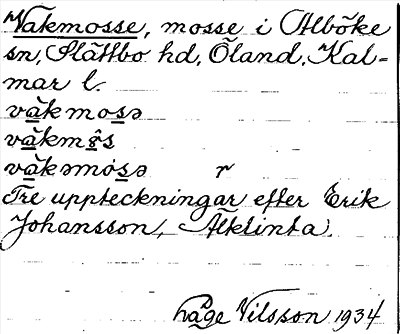 Vakmosse, mosse i Alböke
sn, Slättbo hd, Öland, Kal-
mar l.
våkmosə
våkms
våkəmosə r
Tre uppteckningar efter Erik
Johansson, Älklinta.
håge Nilsson 1934